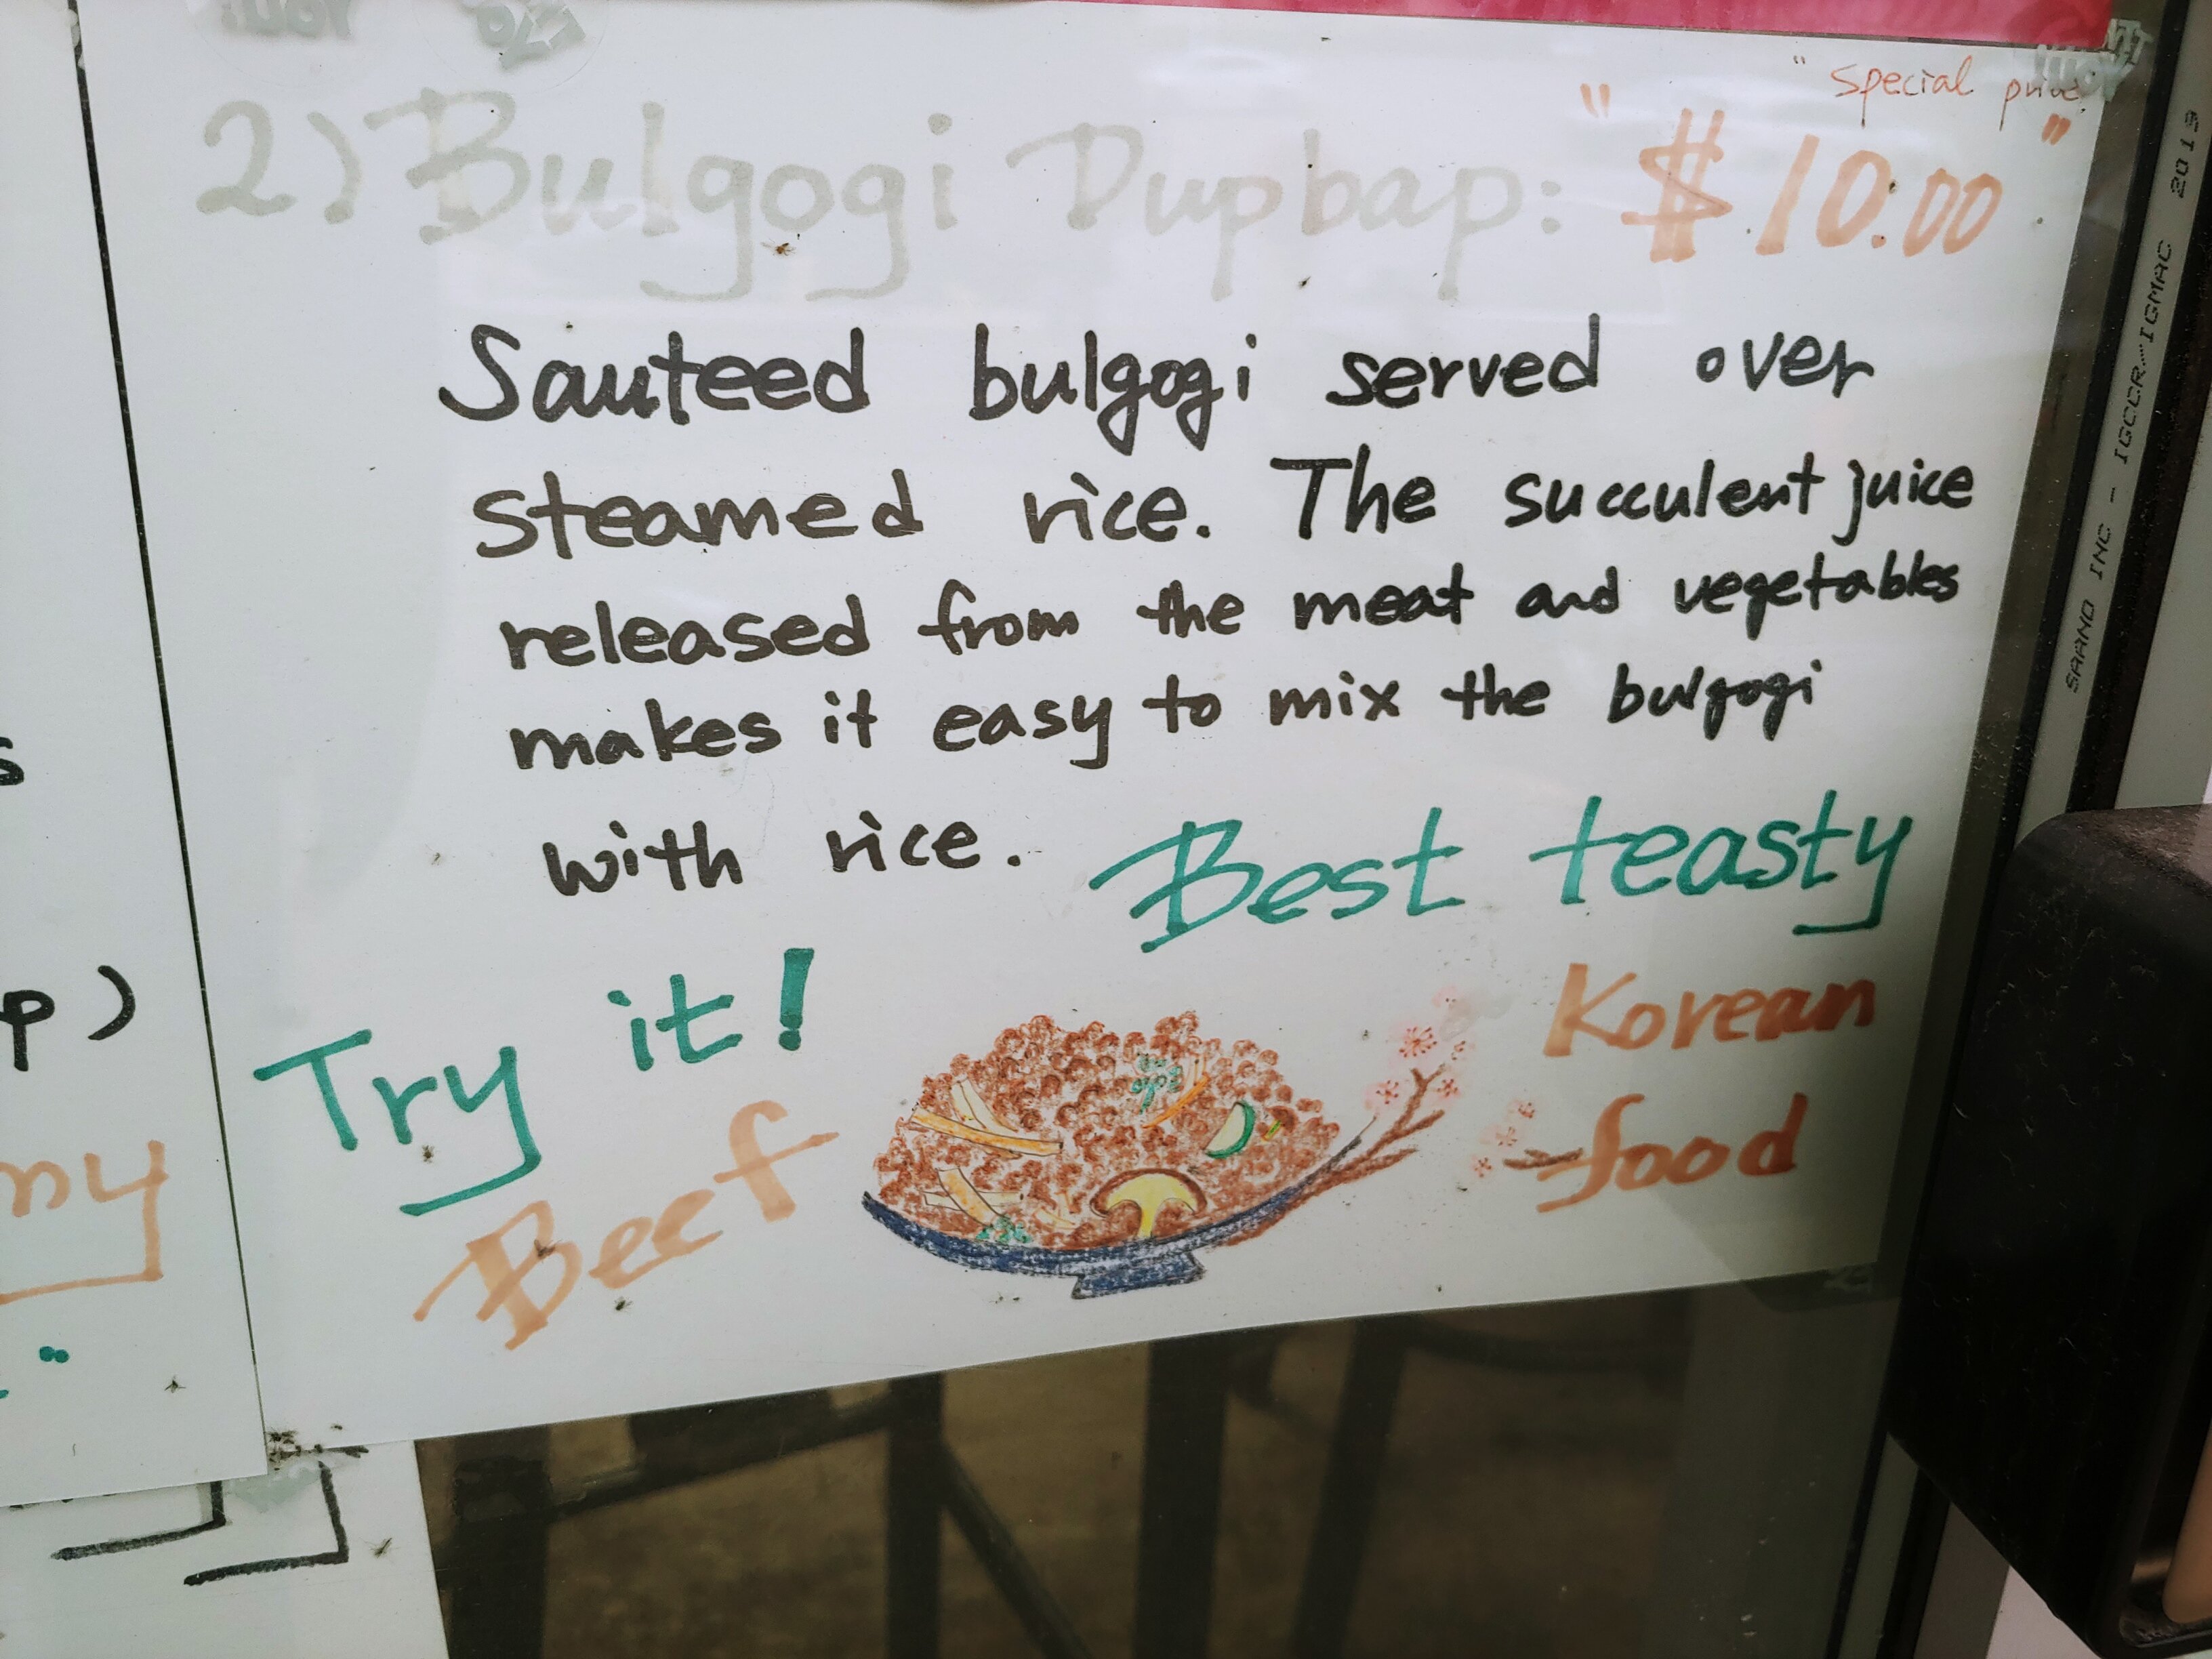 " special price "
2) Bulgogi Dupbap: " $10.00
Sauteed bulgogi served over
steamed rice. The succulent juice
released from the meat and vegetables
makes it easy to mix the bulgogi
with rice.
Best teasty
Korean
food
Try it!
Beef
SAAND INC - IGCCR...IGMAC 2013
s
p)
ny